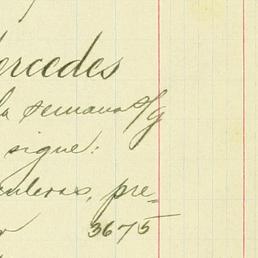 ercedes
la semana s/g
sigue:
culeras, pre=
3675